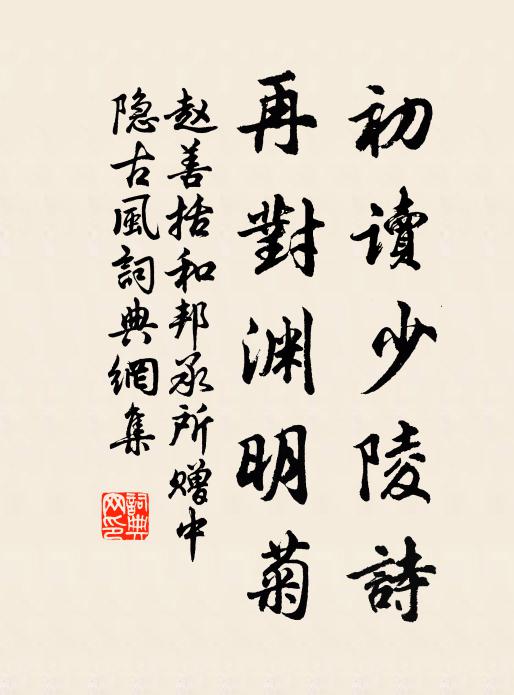 初读少陵詩
再對渊明菊
赵善括和邦承所赠中
隐古風詞典網集
詞典
网印